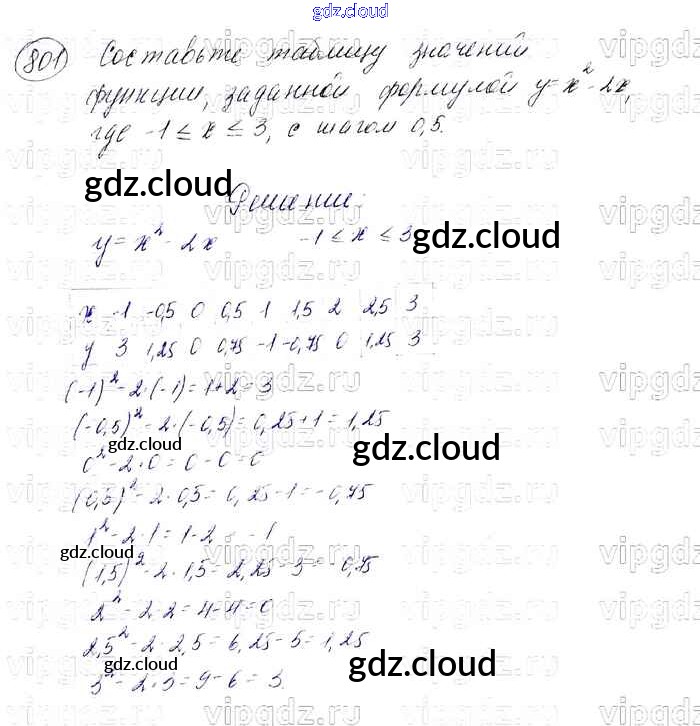 gdz.cloud
801 Составьте таблицу значений
функции, заданной формулой y=x²-2x,
где -1 ≤ x ≤ 3, с шагом 0,5.
gdz.cloud
Решение:
y = x² - 2x -1 ≤ x ≤ 3
gdz.cloud
x -1 -0,5 0 0,5 1 1,5 2 2,5 3
y 3 1,25 0 0,75 -1 -0,75 0 1,25 3
(-1)² - 2·(-1) = 1+2 = 3
(-0,5)² - 2·(-0,5) = 0,25+1 = 1,25
gdz.cloud
gdz.cloud
0² - 2·0 = 0 - 0 = 0
(0,5)² - 2·0,5 = 0,25 - 1 = -0,75
1² - 2·1 = 1 - 2 = -1
gdz.cloud
(1,5)² - 2·1,5 = 2,25 - 3 = -0,75
2² - 2·2 = 4 - 4 = 0
2,5² - 2·2,5 = 6,25 - 5 = 1,25
gdz.cloud
gdz.cloud
3² - 2·3 = 9 - 6 = 3.